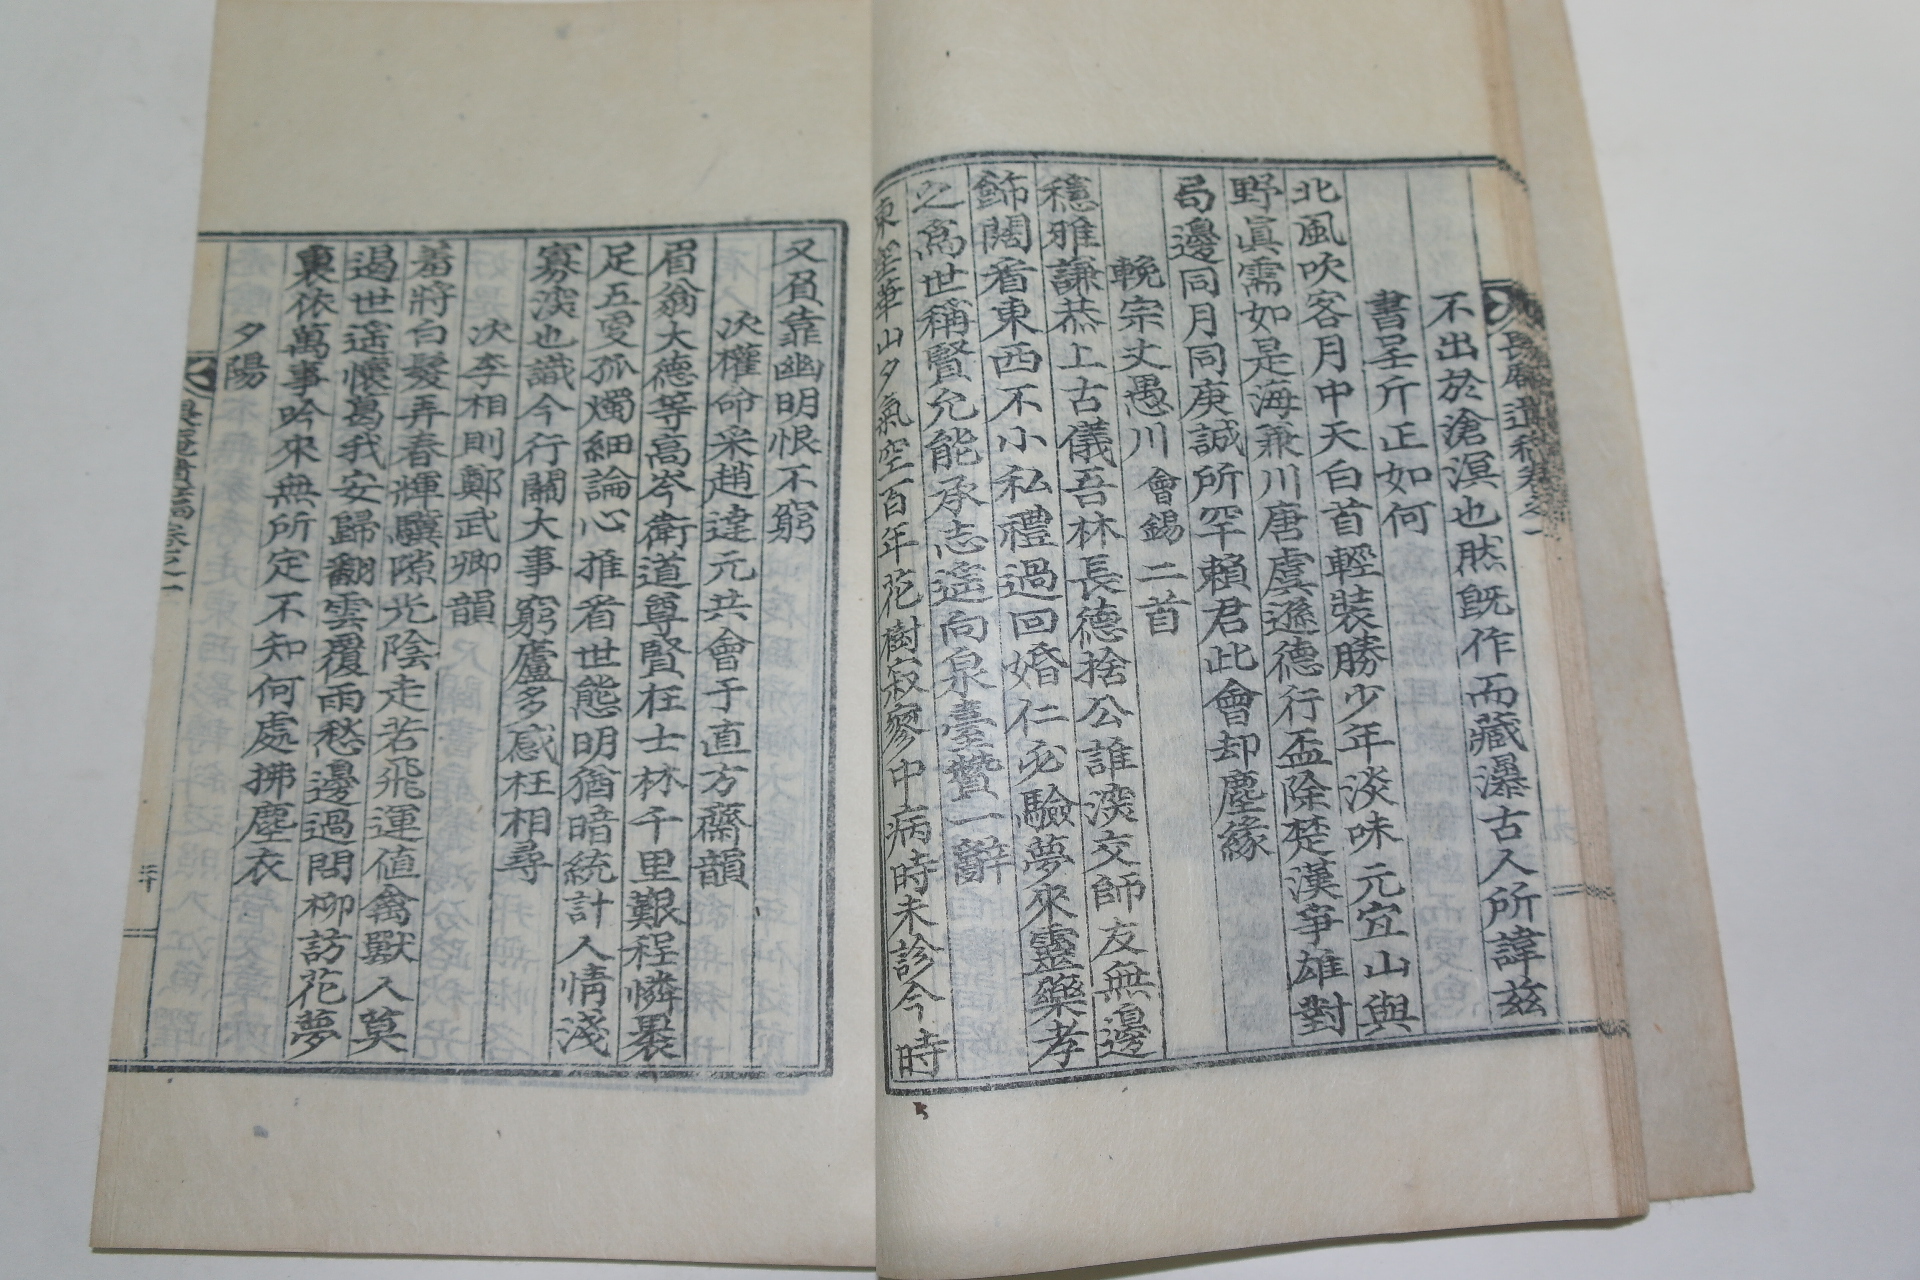 不出於滄溟也然旣作而藏瀑古人所諱玆
書呈斤正如何
北風吹客月中天白首輕裝勝少年淡味元宜山與
野眞需如是海兼川唐虞遜德行盃除楚漢爭雄對
局邊同月同庚誠所罕賴君此會却塵緣
輓宗丈愚川會錫二首
穩雅謙恭上古儀吾林長德捨公誰淡交師友無邊
飾闊看東西不小私禮過回婚仁必驗夢來靈藥孝
之爲世稱賢允能承志遙向泉臺贊一辭
東 華山夕氣空百年花樹寂寥中病時未診今時
又負靠幽明恨不窮
次權命采趙達元共會于直方齋韻
眉翁大德等高岑衛道尊賢在士林千里艱程憐裹
足五更孤燭細論心推看世態明猶暗統計人情淺
寡淡也識今行關大事窮廬多感在相尋
次李相則鄭武卿韻
羞將白髮弄春輝驥隙光陰走若飛運值禽獸人莫
遏世遙懷葛我安歸翻雲覆雨愁邊過問柳訪花夢
裏依萬事吟來無所定不知何處拂塵衣
夕陽
遺稿卷之一